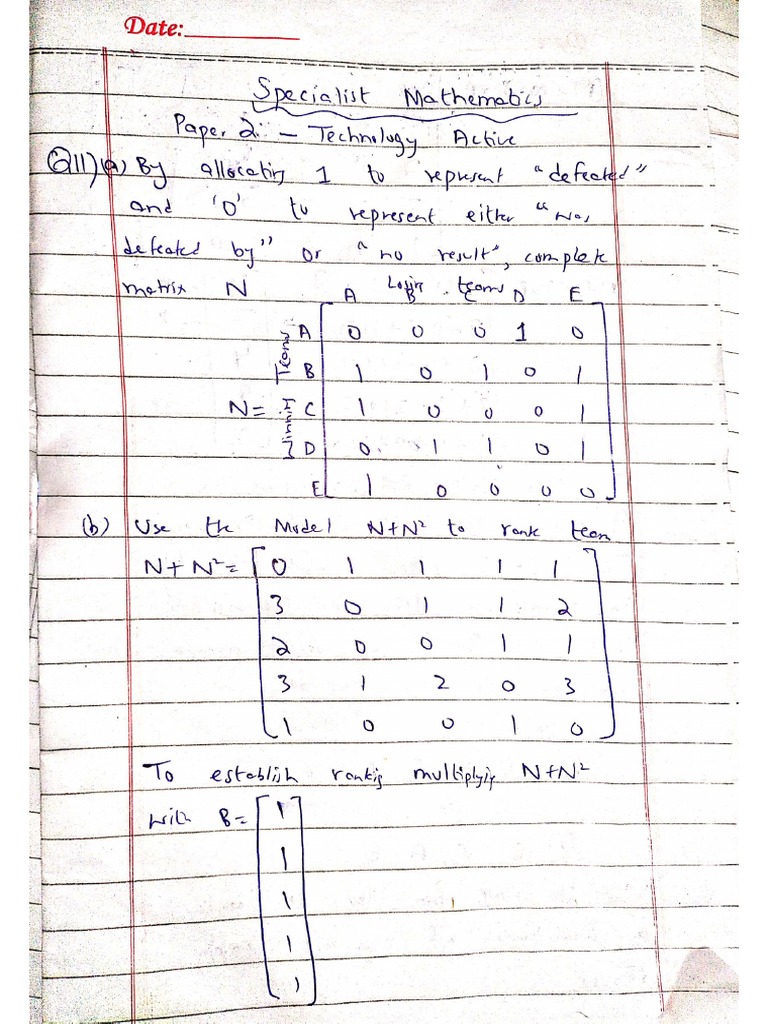 Date:
Specialist Mathematics
Paper 2: - Technology Active
Q11) (a) By allocating 1 to represent "defeated"
and '0' to represent either "was
defeated by" or "no result", complete
matrix N
Losing teams
A B C D E
Winning Teams
N =
A 0 0 0 1 0
B 1 0 1 0 1
C 1 0 0 0 1
D 0 1 1 0 1
E 1 0 0 0 0
(b) Use the Model N+N² to rank team
N+N² = 0 1 1 1 1
3 0 1 1 2
2 0 0 1 1
3 1 2 0 3
1 0 0 1 0
To establish rankig multiplyig N+N²
with B= 1
1
1
1
1